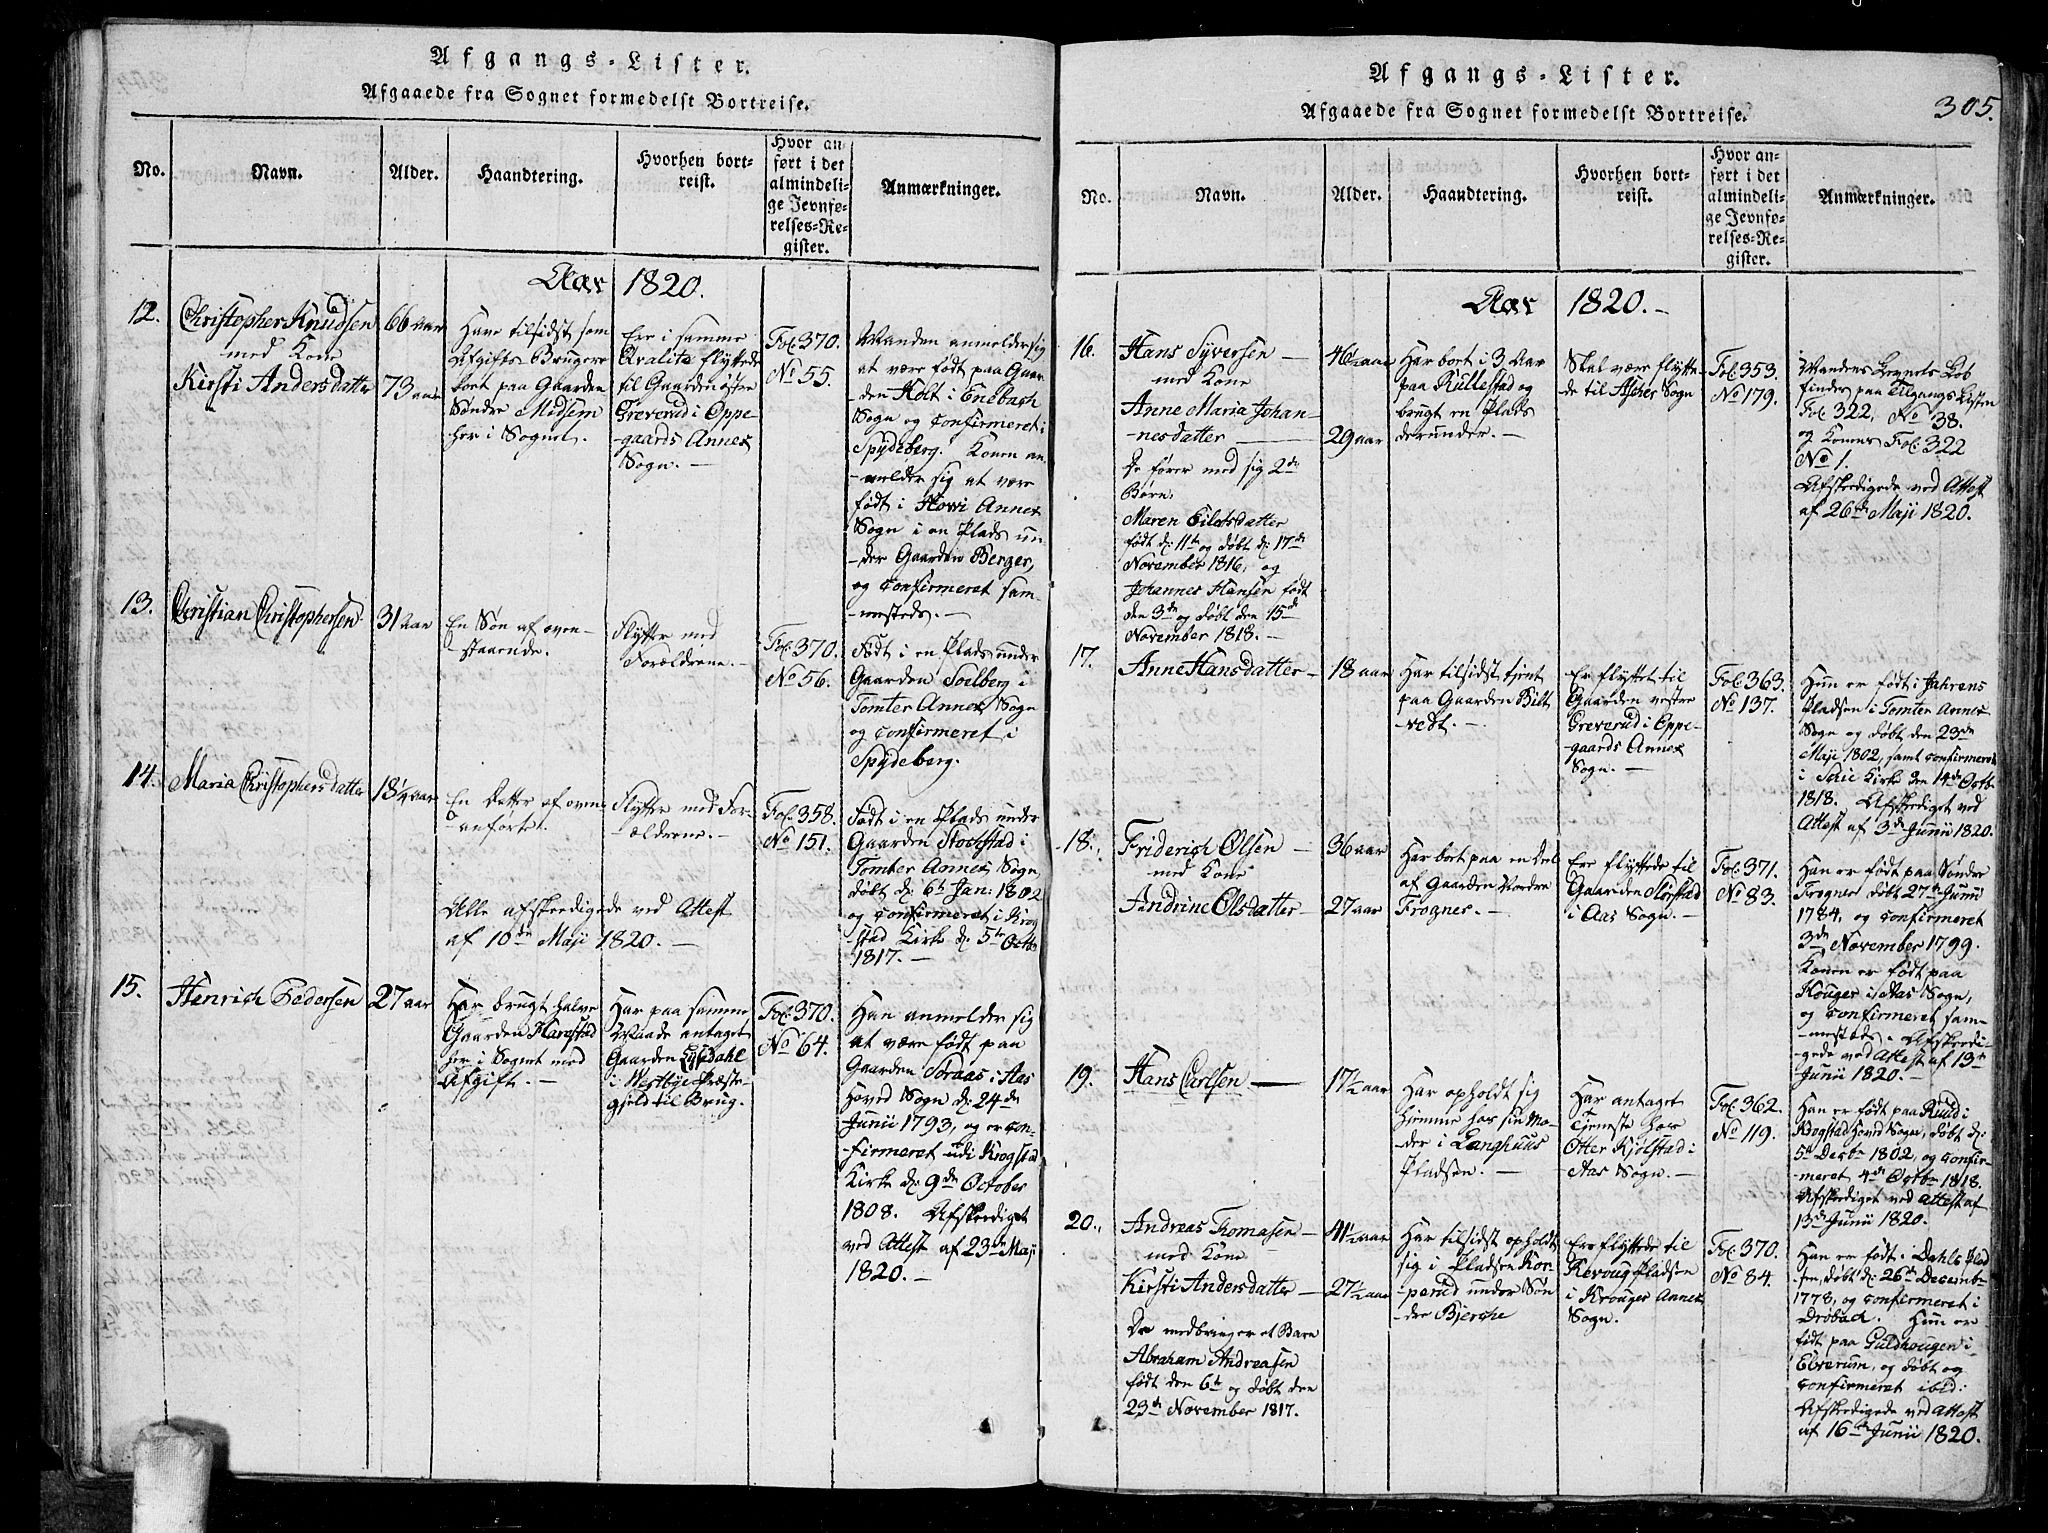 Afgangs-Lister.
Afgaaede fra Sognet formedelst Bortreise.
No.
Navn.
Alder.
Haandtering.
Hvorhen bort-
reist.
Hvor an-
ført i det
almindeli-
ge Jevnfø-
relses-Re-
gister.
Anmærkninger.
Aar 1820.
12.
Christopher Knudsen
med Kone
Kirsti Andersdatter
66 aar
73 aar
Have tilsidst som
Afgifts Brugere
boet paa Gaarden
Sønder Midsem
her i Sognet.
Ere i samme
Qvalitet flyttede
til Gaarden østre
Greverud i Oppe-
gaards Annex
Sogn.
Fol. 370.
No 55.
Manden anmelder sig
at være født paa Gaar-
den Holt i Enebach
Sogn og confirmeret i
Spydeberg. Konen an-
melder sig at være
født i Howi Annex
Sogn i en Plads un-
der Gaarden Berger,
og confirmeret sam-
mesteds.
13.
Christian Christophersen
31 aar
En Søn af oven-
staaende.
Flytter med
Forældrene.
Fol. 370.
No 56.
Født i en Plads under
Gaarden Soelberg i
Tomter Annex Sogn
og confirmeret i
Spydeberg.
14.
Maria Christophersdatter
18¼ aar
En Datter af oven
anførte.
Flytter med For-
ældrene.
Fol. 358.
No 151.
Født i en Plads under
Gaarden Stochstad i
Tomter Annex Sogn,
døbt d: 6te Jan: 1802
og confirmeret i Krog
stad Kirke d: 5te Octbr
1817.
Alle afskedigede ved Attest
af 10de Maji 1820.
15.
Henrich Pedersen
27 aar
Har brugt halve
Gaarden Harestad
her i Sognet mod
Afgift.
Har paa samme
Maade antaget
Gaarden Dahl
i Westbye Præste-
gjeld til Brug.
Fol. 370.
No 64.
Han anmelder sig
at være født paa
Gaarden Soraas i Aas
Hoved Sogn d: 24de
Junii 1793, og er con-
firmeret udi Krogstad
Kirke d: 9de October
1808. Afskediget
ved Attest af 23de Maji
1820.
Afgangs-Lister.
305.
Afgaaede fra Sognet formedelst Bortreise.
No.
Navn.
Alder.
Haandtering.
Hvorhen bort-
reist.
Hvor an-
ført i det
almindeli-
ge Jevnfø-
relses-Re-
gister.
Anmærkninger.
Aar 1820.
16.
Hans Syversen
med Kone
Anne Maria Johan-
nesdatter
De fører med sig 2de
Børn.
Maren Eilertsdatter
født d: 11te og døbt d: 17de
November 1816, og
Johannes Hansen født
den 3de og døbt den 15de
November 1818.
46½ aar
29 aar
Har boet i 3 Aar
paa Kullestad og
brugt en Plads
derunder.
Skal være flytte-
de til Asker Sogn
Fol. 353.
No 179.
Mandens Levnets Løb
findes paa Tilgangs Listen
Fol. 322, No 38.
og Konens Fol. 322
No 1.
Afskedigede ved Attest
af 26de Maji 1820.
17.
Anne Hansdatter
18 aar
Har tilsidst tjent
paa Gaarden Bilt
vedt.
Er flyttet til
Gaarden vestre
Greverud i Oppe-
gaards Annex
Sogn.
Fol. 363.
No 137.
Hun er født i Jahrens
Pladsen i Tomter Annex
Sogn og døbt den 23de
Maji 1802, samt confirmeret
i Schie Kirke den 14de Octb.
1818. Afskediget ved
Attest af 3de Junii 1820.
18.
Friderich Olsen
med Kone
Andrine Olsdatter
36 aar
27 aar
Har boet paa en Del
af Gaarden Nordre
Frogner.
Ere flyttede til
Gaarden Norstad
i Aas Sogn.
Fol. 371.
No 83.
Han er født paa Sønder
Frogner døbt 27de Junii
1784, og confirmeret
3de November 1799.
Konen er født paa
Houger i Aas Sogn,
og confirmeret sam-
mesteds. Afskedi-
gede ved Attest af 13de
Junii 1820.
19.
Hans Carlsen
17½ aar
Har opholdt sig
hjemme hos sin Mo-
der i Langhuus
Pladsen.
Har antaget
Tjeneste hos
Otter Kjølstad i
Aas Sogn.
Fol. 362.
No 119.
Han er født paa Ruud i
Krogstad Hoved Sogn, døbt d:
5te Decbr 1802, og confir-
meret 4de Octbr 1818.
Afskediget ved Attest af
13de Junii 1820.
20.
Andreas Tomasen
med Kone
Kirsti Andersdatter
De medbringer et Barn
Abraham Andreasen
født den 6te og døbt den
23de November 1817.
41½ aar
27½ aar
Har tilsidst opholdt
sig i Pladsen Kor-
perud under Søn
dre Bjerche
Ere flyttede til
Revoug Pladsen
i Krouger Annex
Sogn.
Fol. 370.
No 84.
Han er født i Dahls Plad
sen, døbt d: 26de Decembr
1778, og confirmeret i
Drøbach. Hun er
født paa Guldhougen i
Elverum, og døbt og
confirmeret ibid:
Afskedigede ved Attest
af 16de Junii 1820.